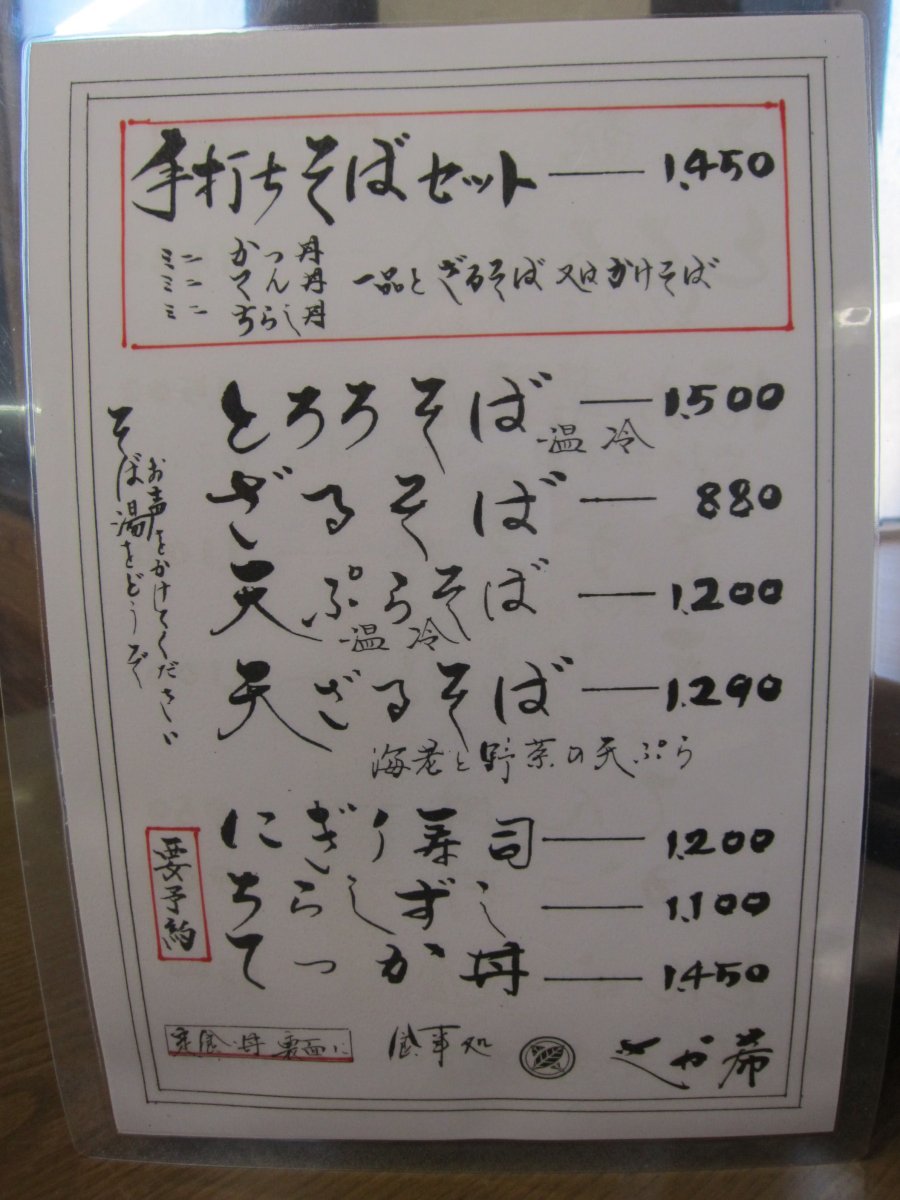 手打ちそばセット — 1.450
ミニ かつ丼
ミニ てん丼
ミニ ちらし丼
一品とざるそば又はかけそば
とろろそば — 1.500
温 冷
ざるそば — 880
天ぷらそば — 1.200
温 冷
天ざるそば — 1.290
海老と野菜の天ぷら
にぎり寿司 — 1.200
ちらしずし — 1.100
てっか丼 — 1.450
そば湯をどうぞ
お声をかけてください
要予約
定食・丼 裏面に
食事処